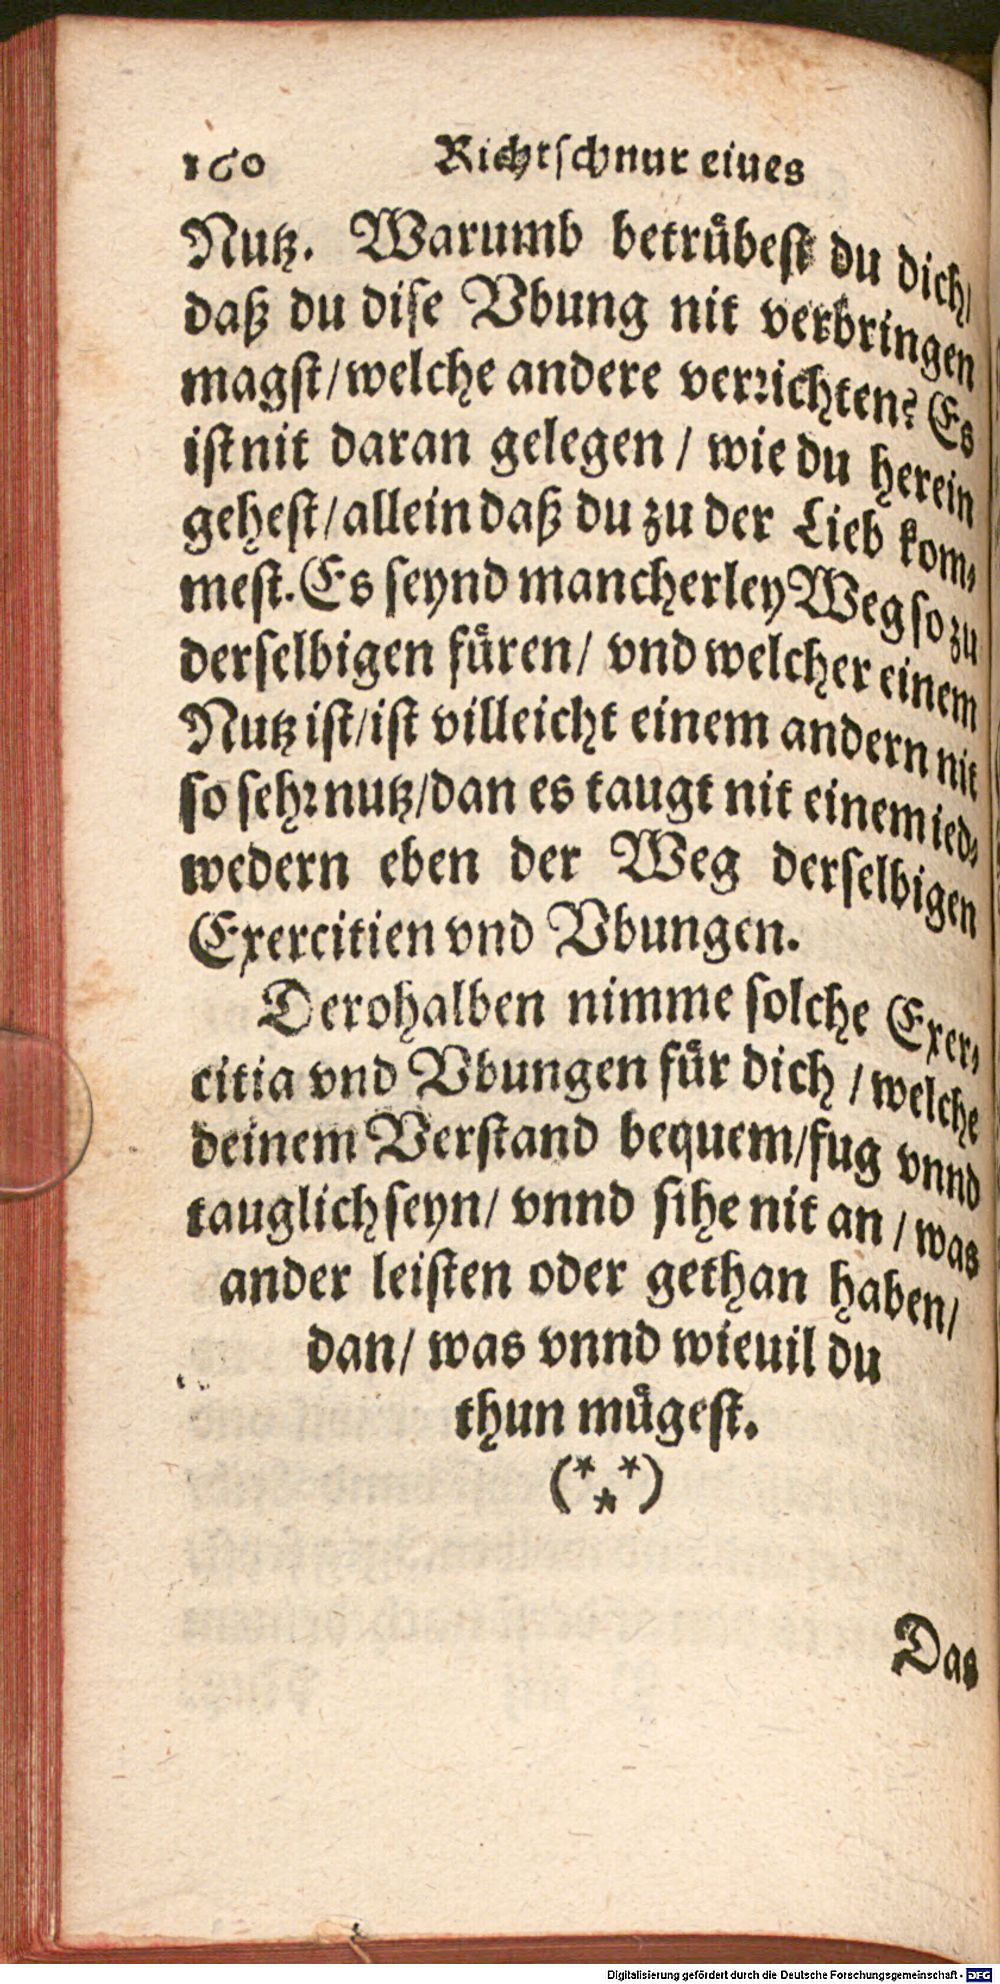 160 Richtschnur eiues
Nutz. Warumb betruͤbest du dich/
daß du dise Vbung nit verbringen
magst/welche andere verꝛichten? Es
ist nit daran gelegen / wie du herein
gehest/allein daß du zu der Lieb kom⸗
mest. Es seynd mancherley Weg so zu
derselbigen fuͤren/ vnd welcher einem
Nutz ist/ist villeicht einem andern nit
so sehꝛ nutz/dan es taugt nit einem ied⸗
wedern eben der Weg derselbigen
Exercitien vnd Vbungen.
Derohalben nimme solche Exer⸗
citia vnd Vbungen fuͤr dich / welche
deinem Verstand bequem/fug vnnd
tauglich seyn/ vnnd sihe nit an / was
ander leisten oder gethan haben/
dan/ was vnnd wieuil du
thun muͤgest.
(* * *)
Das
Digitalisierung gefördert durch die Deutsche Forschungsgemeinschaft - DFG